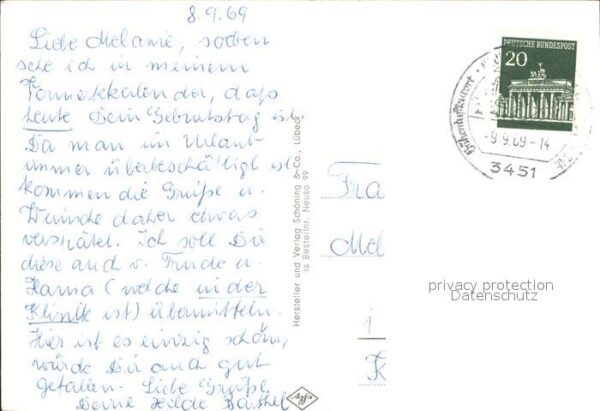 8.9.69
Liebe Melanie, soeben
sehe ich in meinem
heute Dein Geburtstag ist.
Da man im Urlaub
immer überbeschäftigt ist
kommen die Grüße u.
Wünsche daher etwas
verspätet. Ich soll Dir
diese auch v. Trude u.
Hama (welche in der
Klinik ist) übermitteln.
Hier ist es einzig schön,
würde Dir auch gut
gefallen. Liebe Grüße
Deine Hilde Barthel
Hersteller und Verlag Schöning & Co., Lübeck
is Bestellnr. Neuso 99
effy
Fra
Mel
i
K
DEUTSCHE BUNDESPOST
20
Höhenluftkurort
-9.9.69-14
3451
privacy protection
Datenschutz